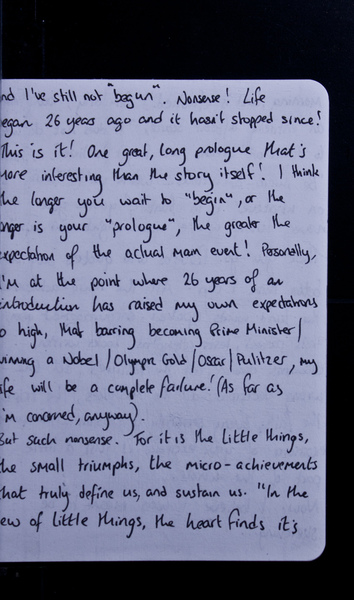 nd I've still not "begun". Nonsense! Life
egan 26 years ago and it hasn't stopped since!
This is it! One great, long prologue that's
more interesting than the story itself! I think
he longer you wait to "begin", or the
nger is your "prologue", the greater the
expectation of the actual main event! Personally,
I'm at the point where 26 years of an
introduction has raised my own expectations
o high, that barring becoming Prime Minister/
inning a Nobel/Olympic Gold/Oscar/Pulitzer, my
ife will be a complete failure! (As far as
'm concerned, anyway).
But such nonsense. For it is the little things,
he small triumphs, the micro-achievements
that truly define us, and sustain us. "In the
ew of little things, the heart finds it's